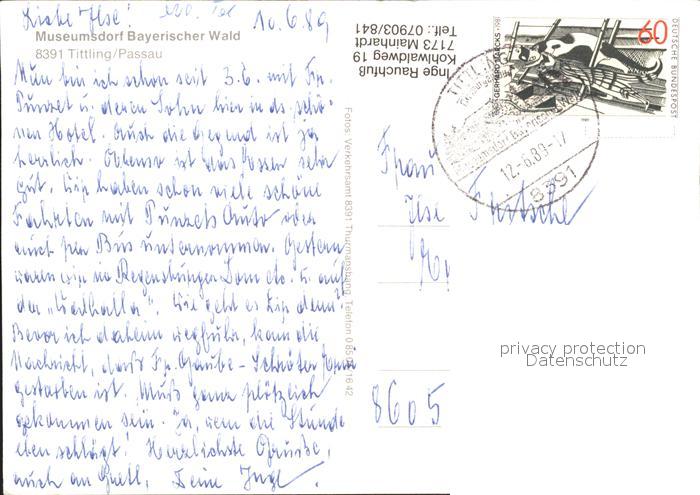 Liebe Ilse! 10.6.89
Museumsdorf Bayerischer Wald
8391 Tittling/Passau
Nun bin ich schon seit 3.6. mit Fr.
Punzet u. deren Sohn hier in ds. schö-
nen Hotel. Auch die Gegend ist ja
herrlich. Ebenso ist das Essen sehr
gut. Wir haben schon viele schöne
Fahrten mit Punzets Auto oder
auch per Bus unternommen. Gestern
waren wir im Regensburger Dom etc. u. auf
der "Walhalla". Wie geht es Dir denn?
Bevor ich daheim wegfuhr, kam die
Nachricht, daß Fr. Gaube - Schröter
gestorben ist. Muß ganz plötzlich
gekommen sein. Ja, wenn die Stunde
eben schlägt! Herzlichste Grüße,
auch an Gretl, Deine Inge.
Inge Rauchfuß
Kohlwaldweg 19
7173 Mainhardt
Telf.: 07903/841
Fotos: Verkehrsamt 8391 Thurmansbang, Telefon
GERHARD MARCKS
60
DEUTSCHE BUNDESPOST
12.-6.89-17
8391
Frau
Ilse Fritsche
8605
privacy protection
Datenschutz